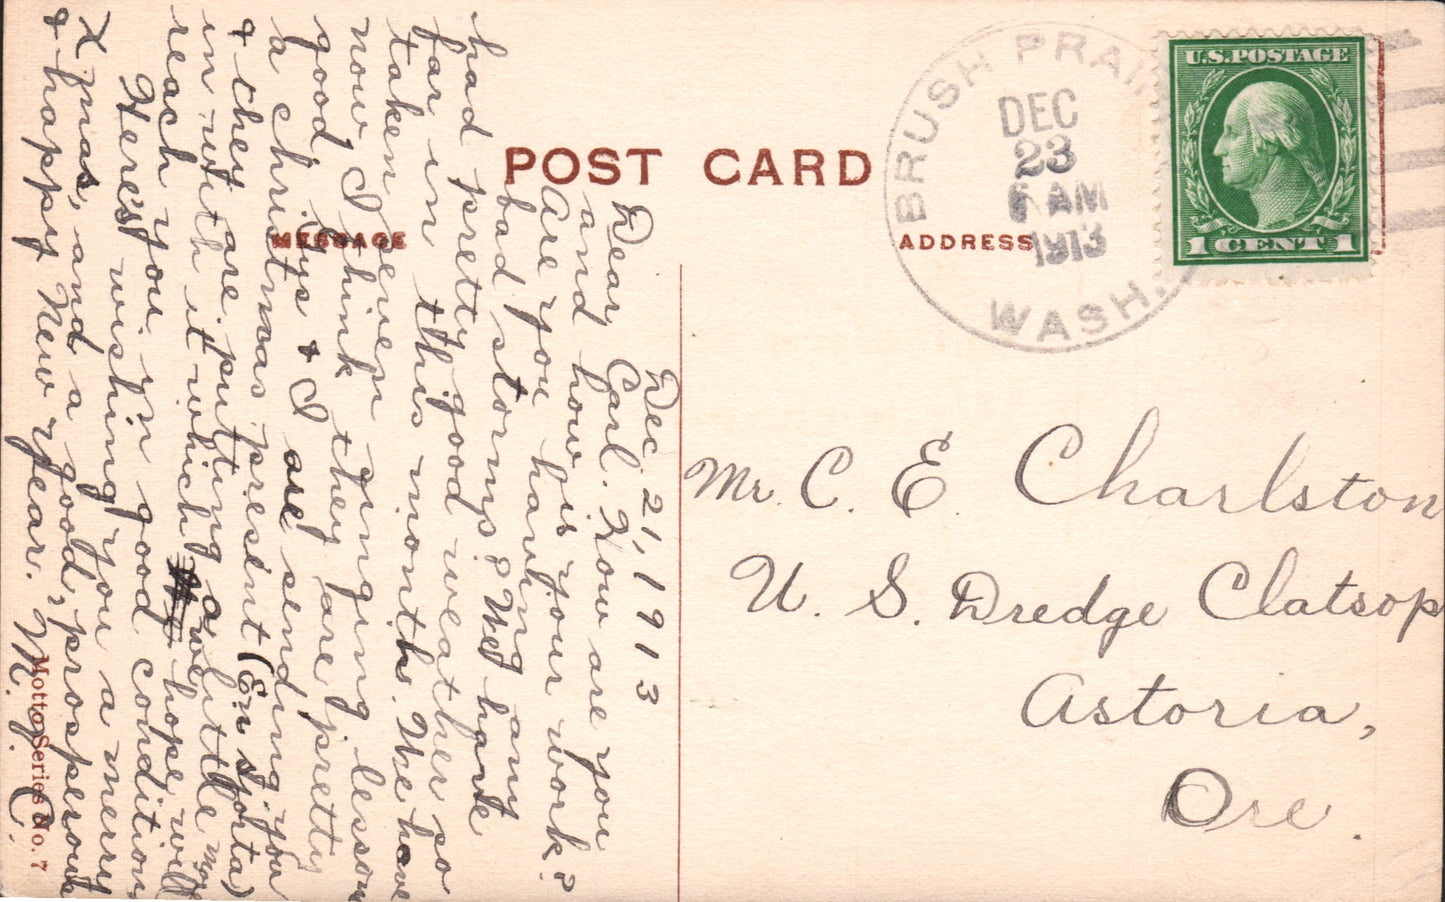 POST CARD
MESSAGE
ADDRESS
BRUSH PRAI
DEC
23
6 AM
1913
WASH.
U.S. POSTAGE
1 CENT 1
Dec. 21, 1913
Dear Carl. How are you
and how is your work?
Are you having any
bad storms? We have
had pretty good weather so
far in this month. We have
taken seven singing lesson
now I think they are pretty
good. & I are sending you
a christmas present (En Sjorta)
& they are putting a little
in with it which we hope will
reach you in good condition,
Here's wishing you a merry
X mas, and a good, prosperous
& happy New Year. M. C.
Motto Series No. 7
Mr. C. E. Charlston
U. S. Dredge Clatsop
Astoria,
Ore.